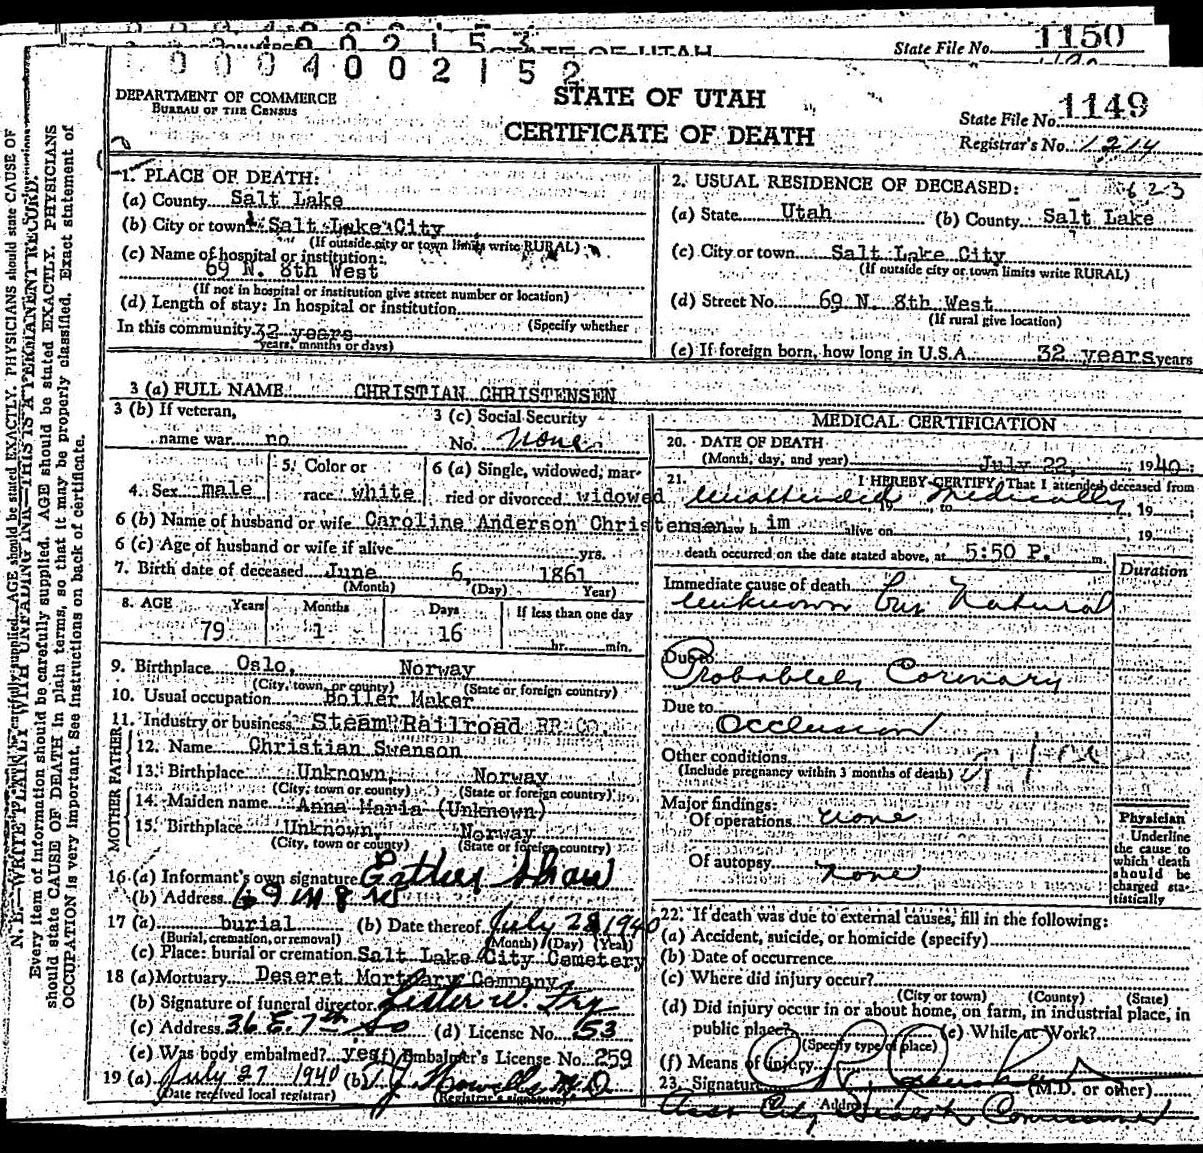 0004002153
STATE OF UTAH
State File No. 1150
0004002152
DEPARTMENT OF COMMERCE
BUREAU OF THE CENSUS
STATE OF UTAH
CERTIFICATE OF DEATH
State File No. 1149
Registrar's No. 1214
N. B.—WRITE PLAINLY WITH UNFADING INK—THIS IS A PERMANENT RECORD.
Every item of information should be carefully supplied. AGE should be stated EXACTLY. PHYSICIANS
should state CAUSE OF DEATH in plain terms, so that it may be properly classified. Exact statement of
OCCUPATION is very important. See instructions on back of certificate.
1. PLACE OF DEATH:
(a) County Salt Lake
(b) City or town Salt Lake City
(If outside city or town limits write RURAL)
(c) Name of hospital or institution:
69 N. 8th West
(If not in hospital or institution give street number or location)
(d) Length of stay: In hospital or institution
(Specify whether
In this community 32 years
years, months or days)
2. USUAL RESIDENCE OF DECEASED: 623
(a) State Utah (b) County Salt Lake
(c) City or town Salt Lake City
(If outside city or town limits write RURAL)
(d) Street No. 69 N. 8th West
(If rural give location)
(e) If foreign born, how long in U.S.A. 32 years years
3 (a) FULL NAME CHRISTIAN CHRISTENSEN
3 (b) If veteran,
name war no
3 (c) Social Security
No. None
4. Sex male
5. Color or
race white
6 (a) Single, widowed, mar-
ried or divorced widowed
6 (b) Name of husband or wife Caroline Anderson Christensen
6 (c) Age of husband or wife if alive yrs.
7. Birth date of deceased June 6, 1861
(Month) (Day) Year)
8. AGE Years Months Days If less than one day
79 1 16 hr. min.
9. Birthplace Oslo, Norway
(City, town, or county) (State or foreign country)
10. Usual occupation Boiler Maker
11. Industry or business Steam Railroad RR CO.
FATHER
12. Name Christian Swenson
13. Birthplace Unknown, Norway
(City, town or county) (State or foreign country)
MOTHER
14. Maiden name Anna Maria (Unknown)
15. Birthplace Unknown, Norway
(City, town or county) (State or foreign country)
16. (a) Informant's own signature Esther Shaw
(b) Address 69 N 8 W
17 (a) burial (b) Date thereof July 28, 1940
(Burial, cremation, or removal) (Month) (Day) (Year)
(c) Place: burial or cremation Salt Lake City Cemetery
18 (a) Mortuary Deseret Mortuary Company
(b) Signature of funeral director Lister W. Fry
(c) Address 36 E. 7th So (d) License No. 53
(e) Was body embalmed? yes (f) Embalmer's License No. 259
19 (a) July 27 1940 (b) T. J. Howells M.D.
(Date received local registrar) (Registrar's signature)
MEDICAL CERTIFICATION
20. DATE OF DEATH
(Month, day, and year) July 22, 1940
21. I HEREBY CERTIFY, That I attended deceased from
Unattended Medically, 19 , to , 19 ;
saw h im alive on , 19 ;
death occurred on the date stated above, at 5:50 P. m.
Duration
Immediate cause of death
Unknown but Natural
Due to
Probablely Coronary
Due to
Occlusion
Other conditions
(Include pregnancy within 3 months of death)
Major findings:
Of operations none
Of autopsy none
Physician
Underline
the cause to
which death
should be
charged sta-
tistically
22. If death was due to external causes, fill in the following:
(a) Accident, suicide, or homicide (specify)
(b) Date of occurrence
(c) Where did injury occur?
(City or town) (County) (State)
(d) Did injury occur in or about home, on farm, in industrial place, in
public place? (e) While at Work?
(Specify type of place)
(f) Means of injury
23. Signature (M.D. or other)
Address Asst City Health Commissioner